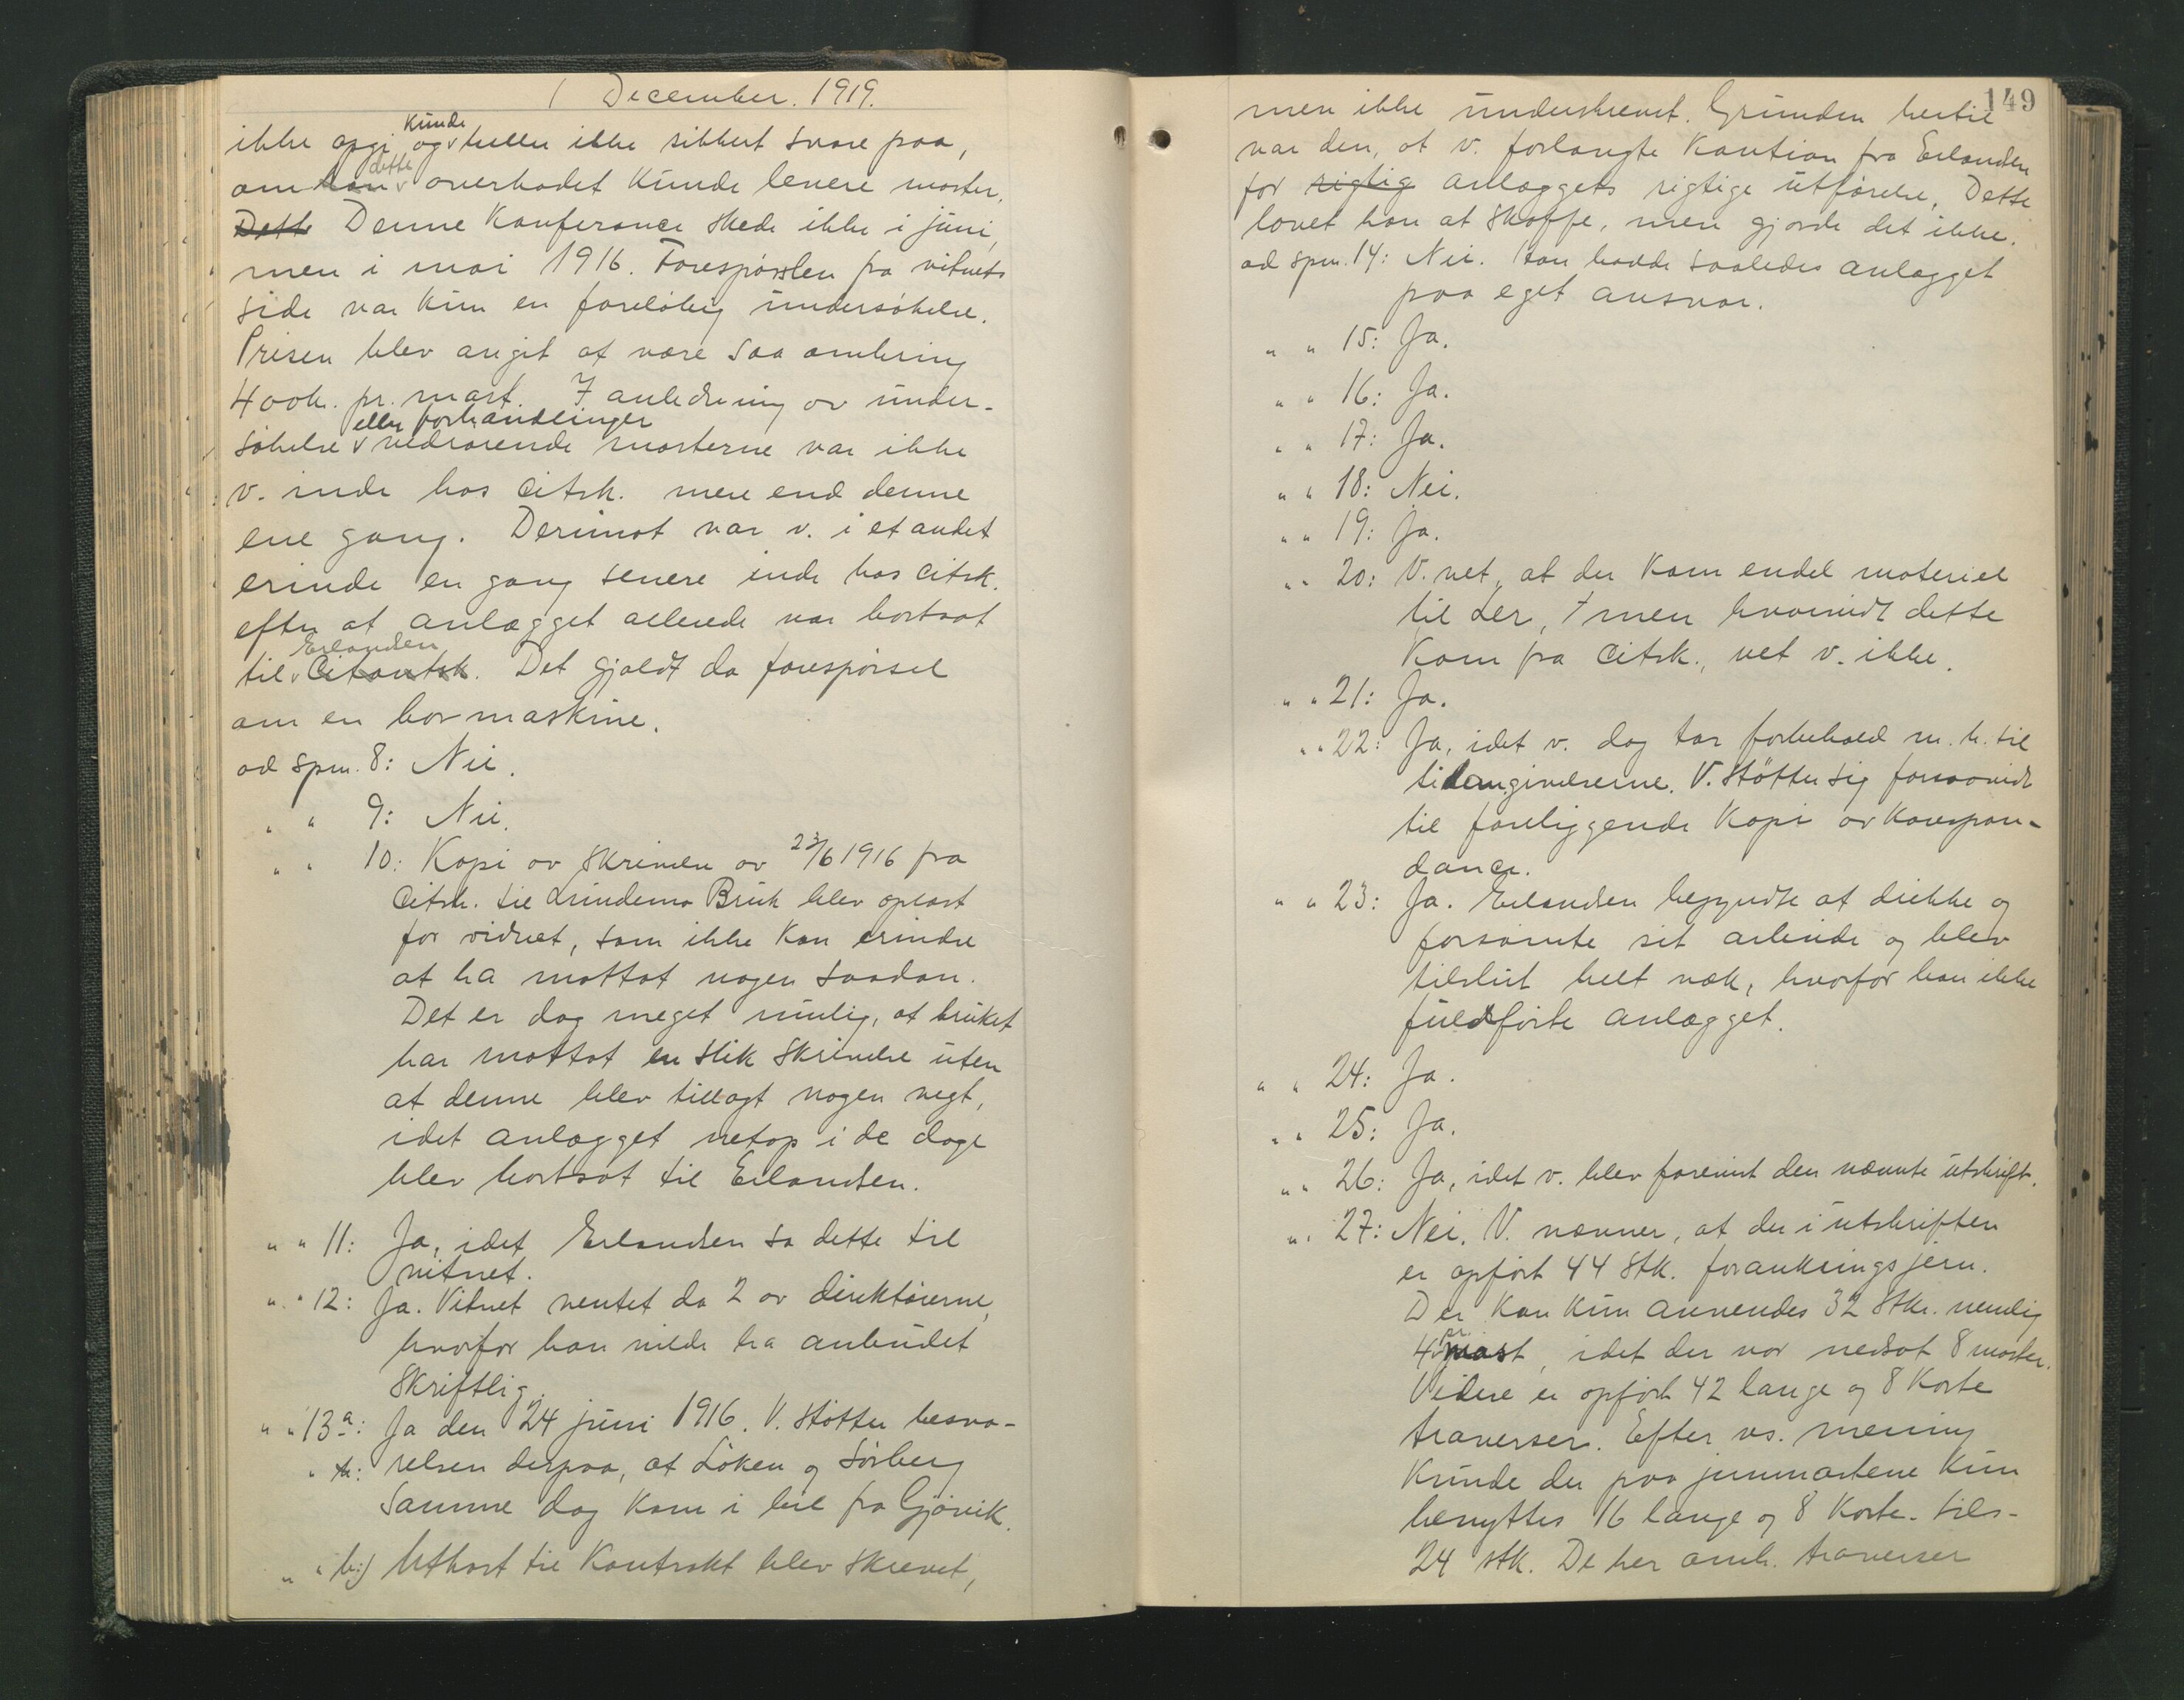 1 December. 1919.
ikke opgi og kunde heller ikke sikkert svare paa,
om han dette overhodet kunde levere master.
Dette Denne Konferance skede ikke i juni,
men i mai 1916. Forespørslen fra vitnets
side var kun en foreløbig undersøkelse.
Prisen blev angit at være saa omkring
400 kr. pr. mast. I anledning av under-
søkelse eller forhandlinger vedrørende masterne var ikke
v. inde hos citsk. mere end denne
ene gang. Derimot var v. i et andet
erinde en gang senere inde hos citsk.
efter at anlægget allerede var bortsat
til Citantsk. Erlandsen. Det gjaldt da forespørsel
om en bormaskine.
ad spm. 8: Nei.
" " 9: Nei.
" " 10: Kopi av skrivelse av 23/6 1916 fra
citsk. til Lundemo Bruk blev oplæst
for vidnet, som ikke kan erindre
at ha mottat nogen saadan.
Det er dog meget mulig, at bruket
har mottat en slik skrivelse uten
at denne blev tillagt nogen vegt,
idet anlægget netop i de dage
blev bortsat til Erlandsen.
" " 11: Ja, idet Erlandsen sa dette til
vitnet.
" " 12: Ja. Vitnet ventet da 2 av direktørerne,
hvorfor han vilde ha anbudet
skriftlig.
" " 13a: Ja den 24 juni 1916. V. støtter besva-
" b: relsen derpaa, at Løken og Sørberg
samme dag kom i bil fra Gjøvik.
" " b:) Utkast til Kontrakt blev skrevet,
149
men ikke underskrevet. Grunden hertil
var den, at v. forlangte Kaution fra Erlandsen
for rigtig anlæggets rigtige utførelse. Dette
lovet han at skaffe, men gjorde det ikke.
ad spm. 14: Nei. Han hadde saaledes anlægget
paa eget ansvar.
" " 15: Ja.
" " 16: Ja.
" " 17: Ja.
" " 18: Nei.
" " 19: Ja.
" " 20: V. vet, at der kom endel materiel
til Ler, men hvorvidt dette
kom fra citsk., vet v. ikke.
" " 21: Ja.
" " 22: Ja, idet v. dog tar forbehold m. h. til
tidsangivelserne. V. støtter sig forsaavidt
til foreliggende kopi av korrespon-
dance.
" " 23: Ja. Erlandsen begyndte at drikke og
forsømte sit arbeide og blev
tilslut helt væk, hvorfor han ikke
fuldførte anlægget.
" " 24: Ja.
" " 25: Ja.
" " 26: Ja, idet v. blev forevist den nævnte utskrift.
" " 27: Nei. V. nævner, at der i utskriften
er opført 44 stk. forankringsjern.
Der kan kun anvendes 32 stk. nemlig
4 pr. mast, idet der var nedsat 8 master.
Videre er opført 42 lange og 8 korte
traverser. Efter vs. mening
kunde der paa jernmastene kun
benyttes 16 lange og 8 korte. tils-
24 stk. De her omh. traverser